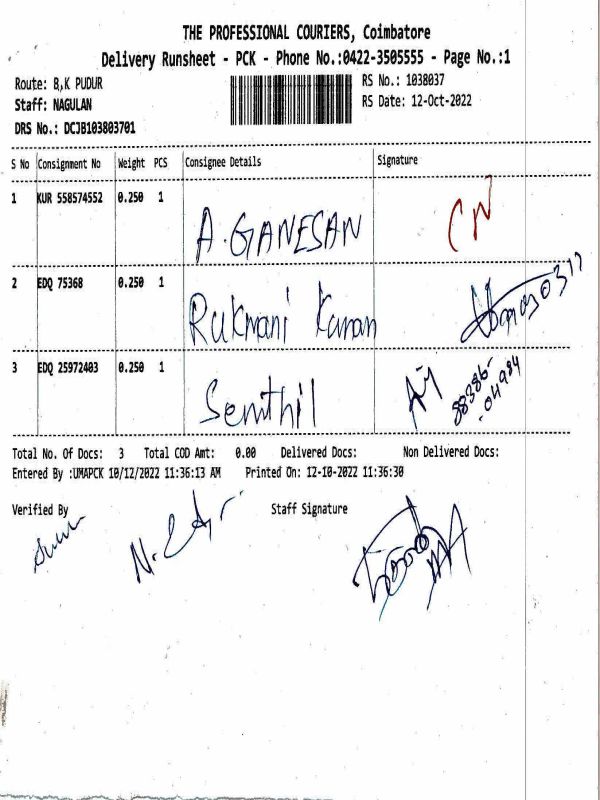 THE PROFESSIONAL COURIERS, Coimbatore
Delivery Runsheet - PCK - Phone No.:0422-3505555 - Page No.:1
Route: B,K PUDUR RS No.: 1038037
Staff: NAGULAN RS Date: 12-Oct-2022
DRS No.: DCJB103803701
S No Consignment No Weight PCS Consignee Details Signature
1 KUR 558574552 0.250 1
A. GANESAN CN
2 EDQ 75368 0.250 1
Rukmani Kanan
3 EDQ 25972403 0.250 1
Senthil 88386-
-04984
Total No. Of Docs: 3 Total COD Amt: 0.00 Delivered Docs: Non Delivered Docs:
Entered By :UMAPCK 10/12/2022 11:36:13 AM Printed On: 12-10-2022 11:36:30
Verified By Staff Signature